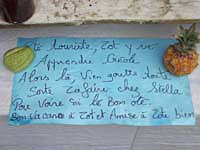 Te touriste, Zot y ve
Apprendre Créole
Alors là, Vien goutte toute
Sorte Zafaire chez Stella
Pou Voire Si le Bon ote.
Bon Vacance à Zot et Amuse à Zote bien